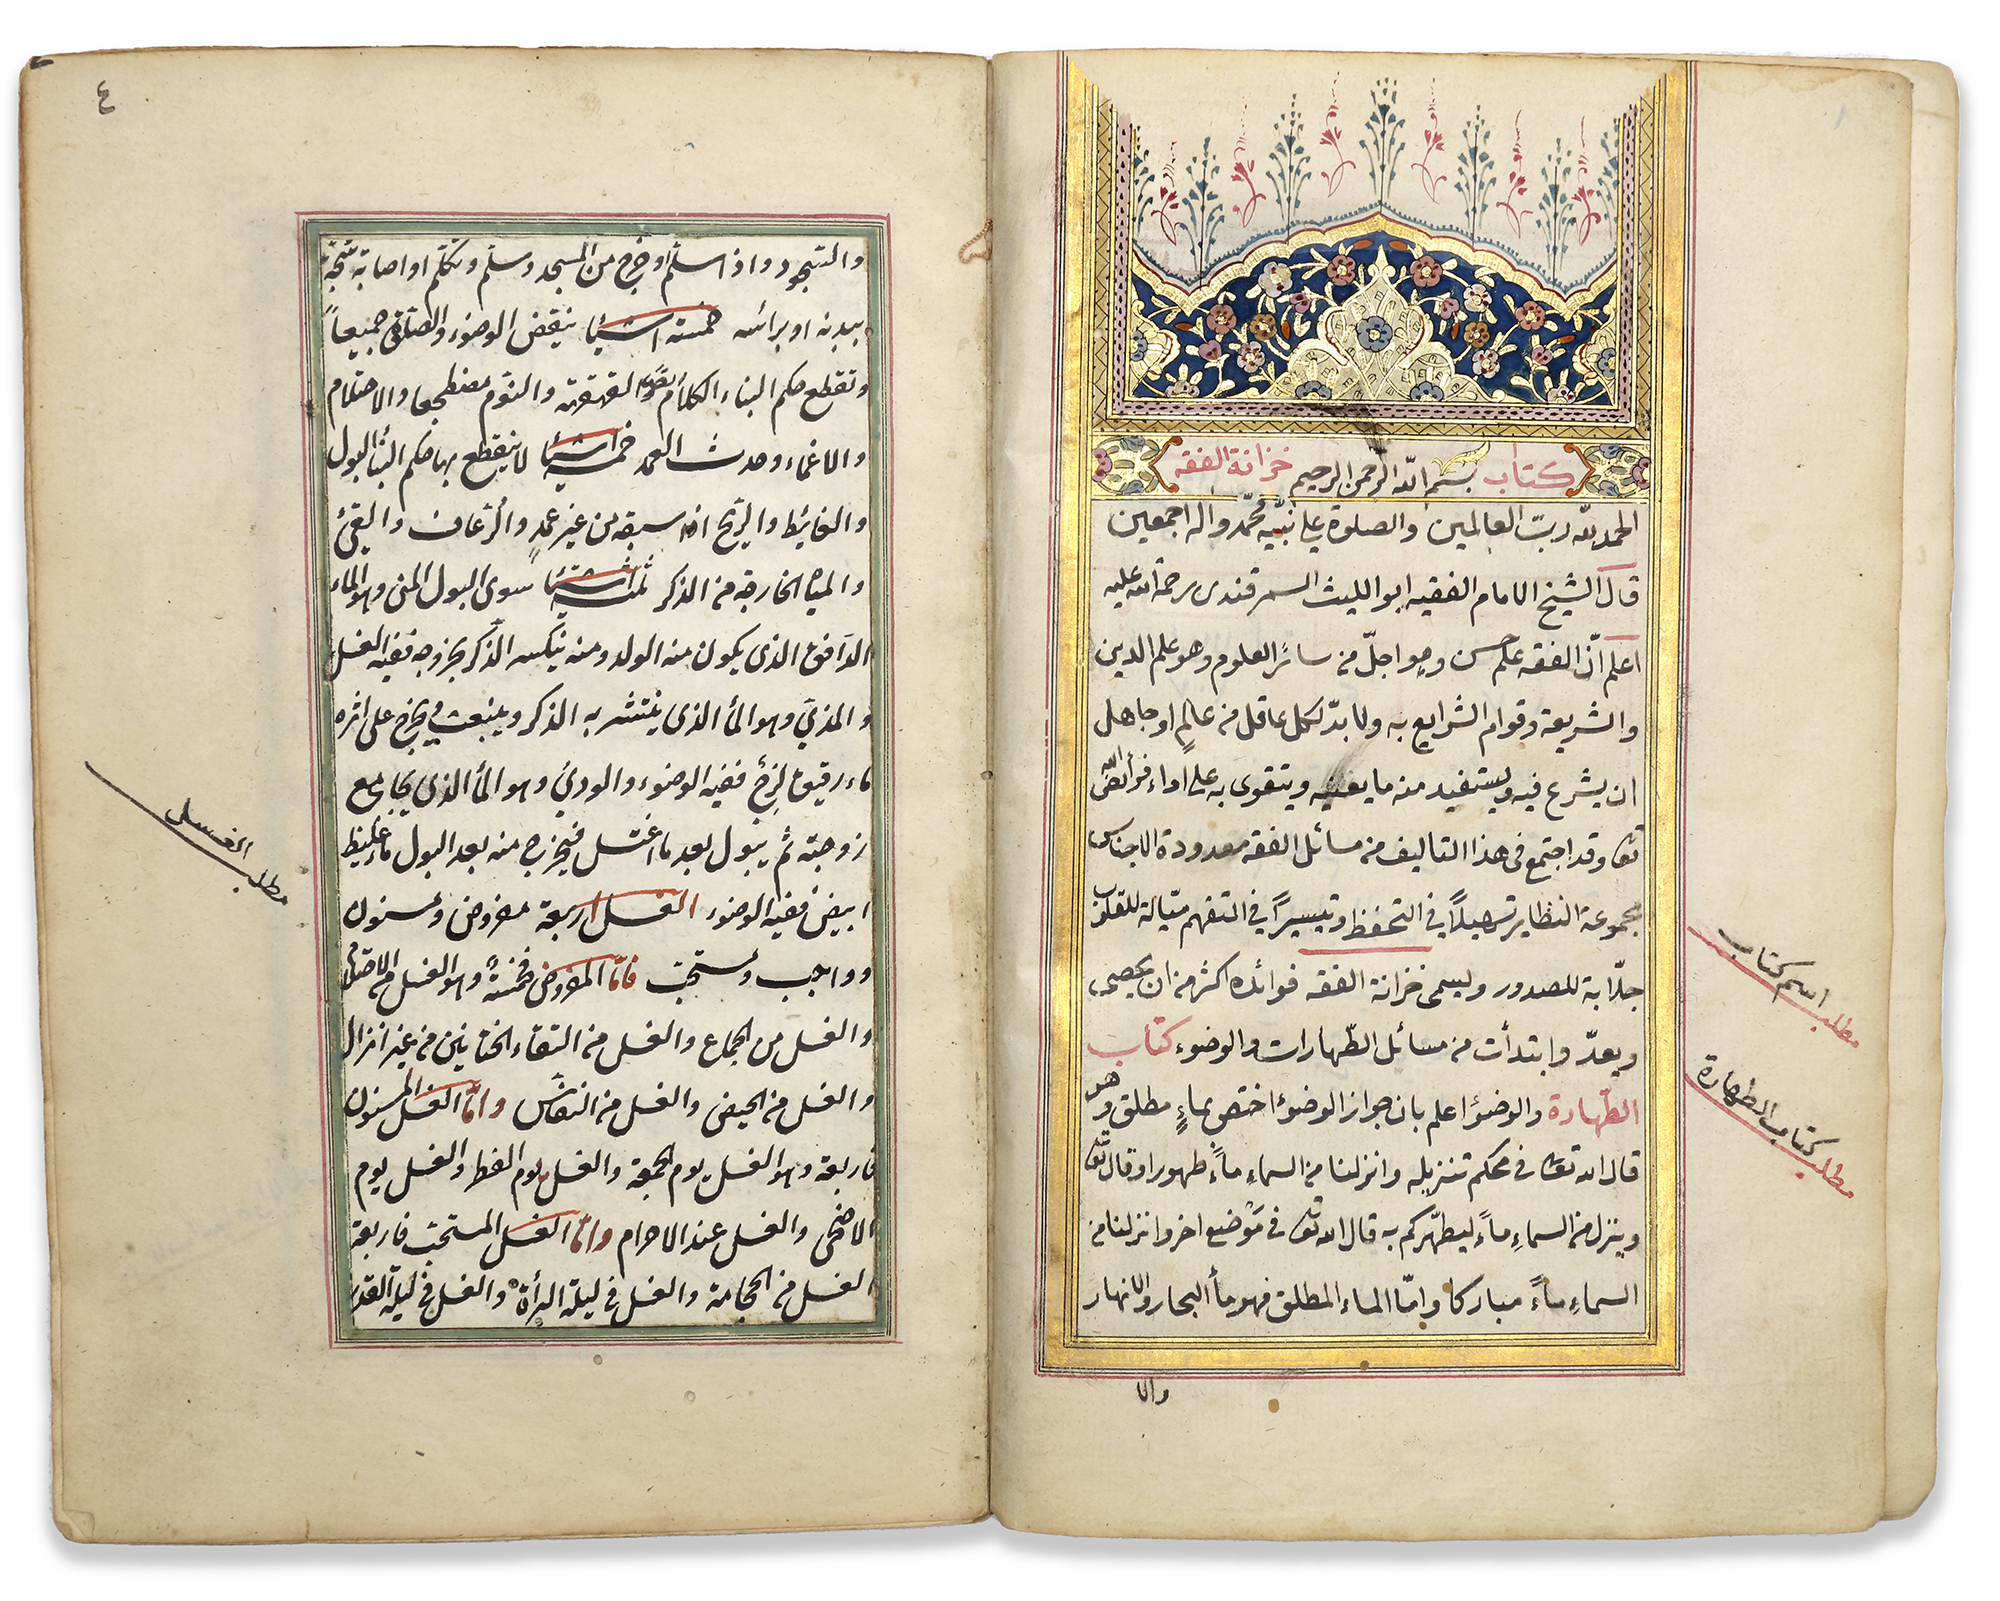 كتاب بسم الله الرحمن الرحيم خزانة الفقه
الحمد لله ربّ العالمين والصلوة على نبيّه محمّد واله اجمعين
قال الشيخ الامام الفقيه ابو الليث السمرقندى رحمة الله عليه
اعلم انّ الفقه علم حسن وهو اجلّ من سائر العلوم وهو علم الدين
والشريعة وقوام الشرايع به ولا بدّ لكل عاقل من عالمٍ او جاهل
ان يشرع فيه ويستفيد منه ما يعينه ويتقوى به على اداء فرائض الله
تعا وقد اجتمع فى هذا التاليف من مسائل الفقه معدودة الاجناس
مجموعة النظاير تسهيلاً فى التحفظ وتيسيراً فى التفهم ميّالة للقلوب
جلّابة للصدور وليسمى خزانة الفقه فوائده اكثر من ان يحصى
ويعدّ وابتدأت من مسائل الطّهارات والوضوء كتاب
الطّهارة والوضؤ اعلم بان جواز الوضوء اختص بماءٍ مطلق وهو
قال الله تعا فى محكم تنزيله وانزلنا من السماء ماءً طهورا وقال تعا
وينزل من السماء ماءً ليطهّركم به قال الله تعا فى موضع اخر وانزلنا من
السماء ماءً مباركا وامّا الماء المطلق فهو ماء البحار والانهار
والا
مطلب اسم كتاب
مطلب كتاب الطهارة
٤
والسّجود واذا سلّم او خرج من المسجد وسلّم وتكلّم او اصابته شجّة
ببدنه او برأسه خمسة اشيا ينقض الوضوء والصلوة جميعاً
وتقطع حكم البناء الكلام والقهقهة والنوم مضطجعا والاحتلام
والاغماء وحدث العمد خمسة اشيا لا ينقطع بها حكم البناء البول
والغائط والريح اذا سبقه من غير عمدٍ والرّعاف والقئ
والمياه الخارجة من الذكر ثلثة اشيا سوى البول المنى وهو الماء
الدافق الذى يكون منه الولد ومنه ينكسه الذكر بخروجه ففيه الغسل
والمذىّ وهو الماء الذى ينتشر به الذكر وينبعث فيخرج على اثره
ماء رقيق لزج ففيه الوضوء والودىّ وهو الماء الذى يجامع
زوجته ثم يبول بعد ما اغتسل فيخرج منه بعد البول ماء غليظ
ابيض ففيه الوضوء الغسل اربعة مفروض ومسنون
وواجب ومستحّب فامّا المفروض فخمسة وهو الغسل من الاحتلام
والغسل من الجماع والغسل من التقاء الختانين من غير انزال
والغسل من الحيض والغسل من النفاس وامّا الغسل المسنون
فاربعة وهو الغسل يوم الجمعة والغسل يوم الفطر والغسل يوم
الاضحى والغسل عند الاحرام وامّا الغسل المستحّب فاربعة
الغسل من الحجامة والغسل فى ليلة البرأة والغسل فى ليلة القدر
مطلب الغسل